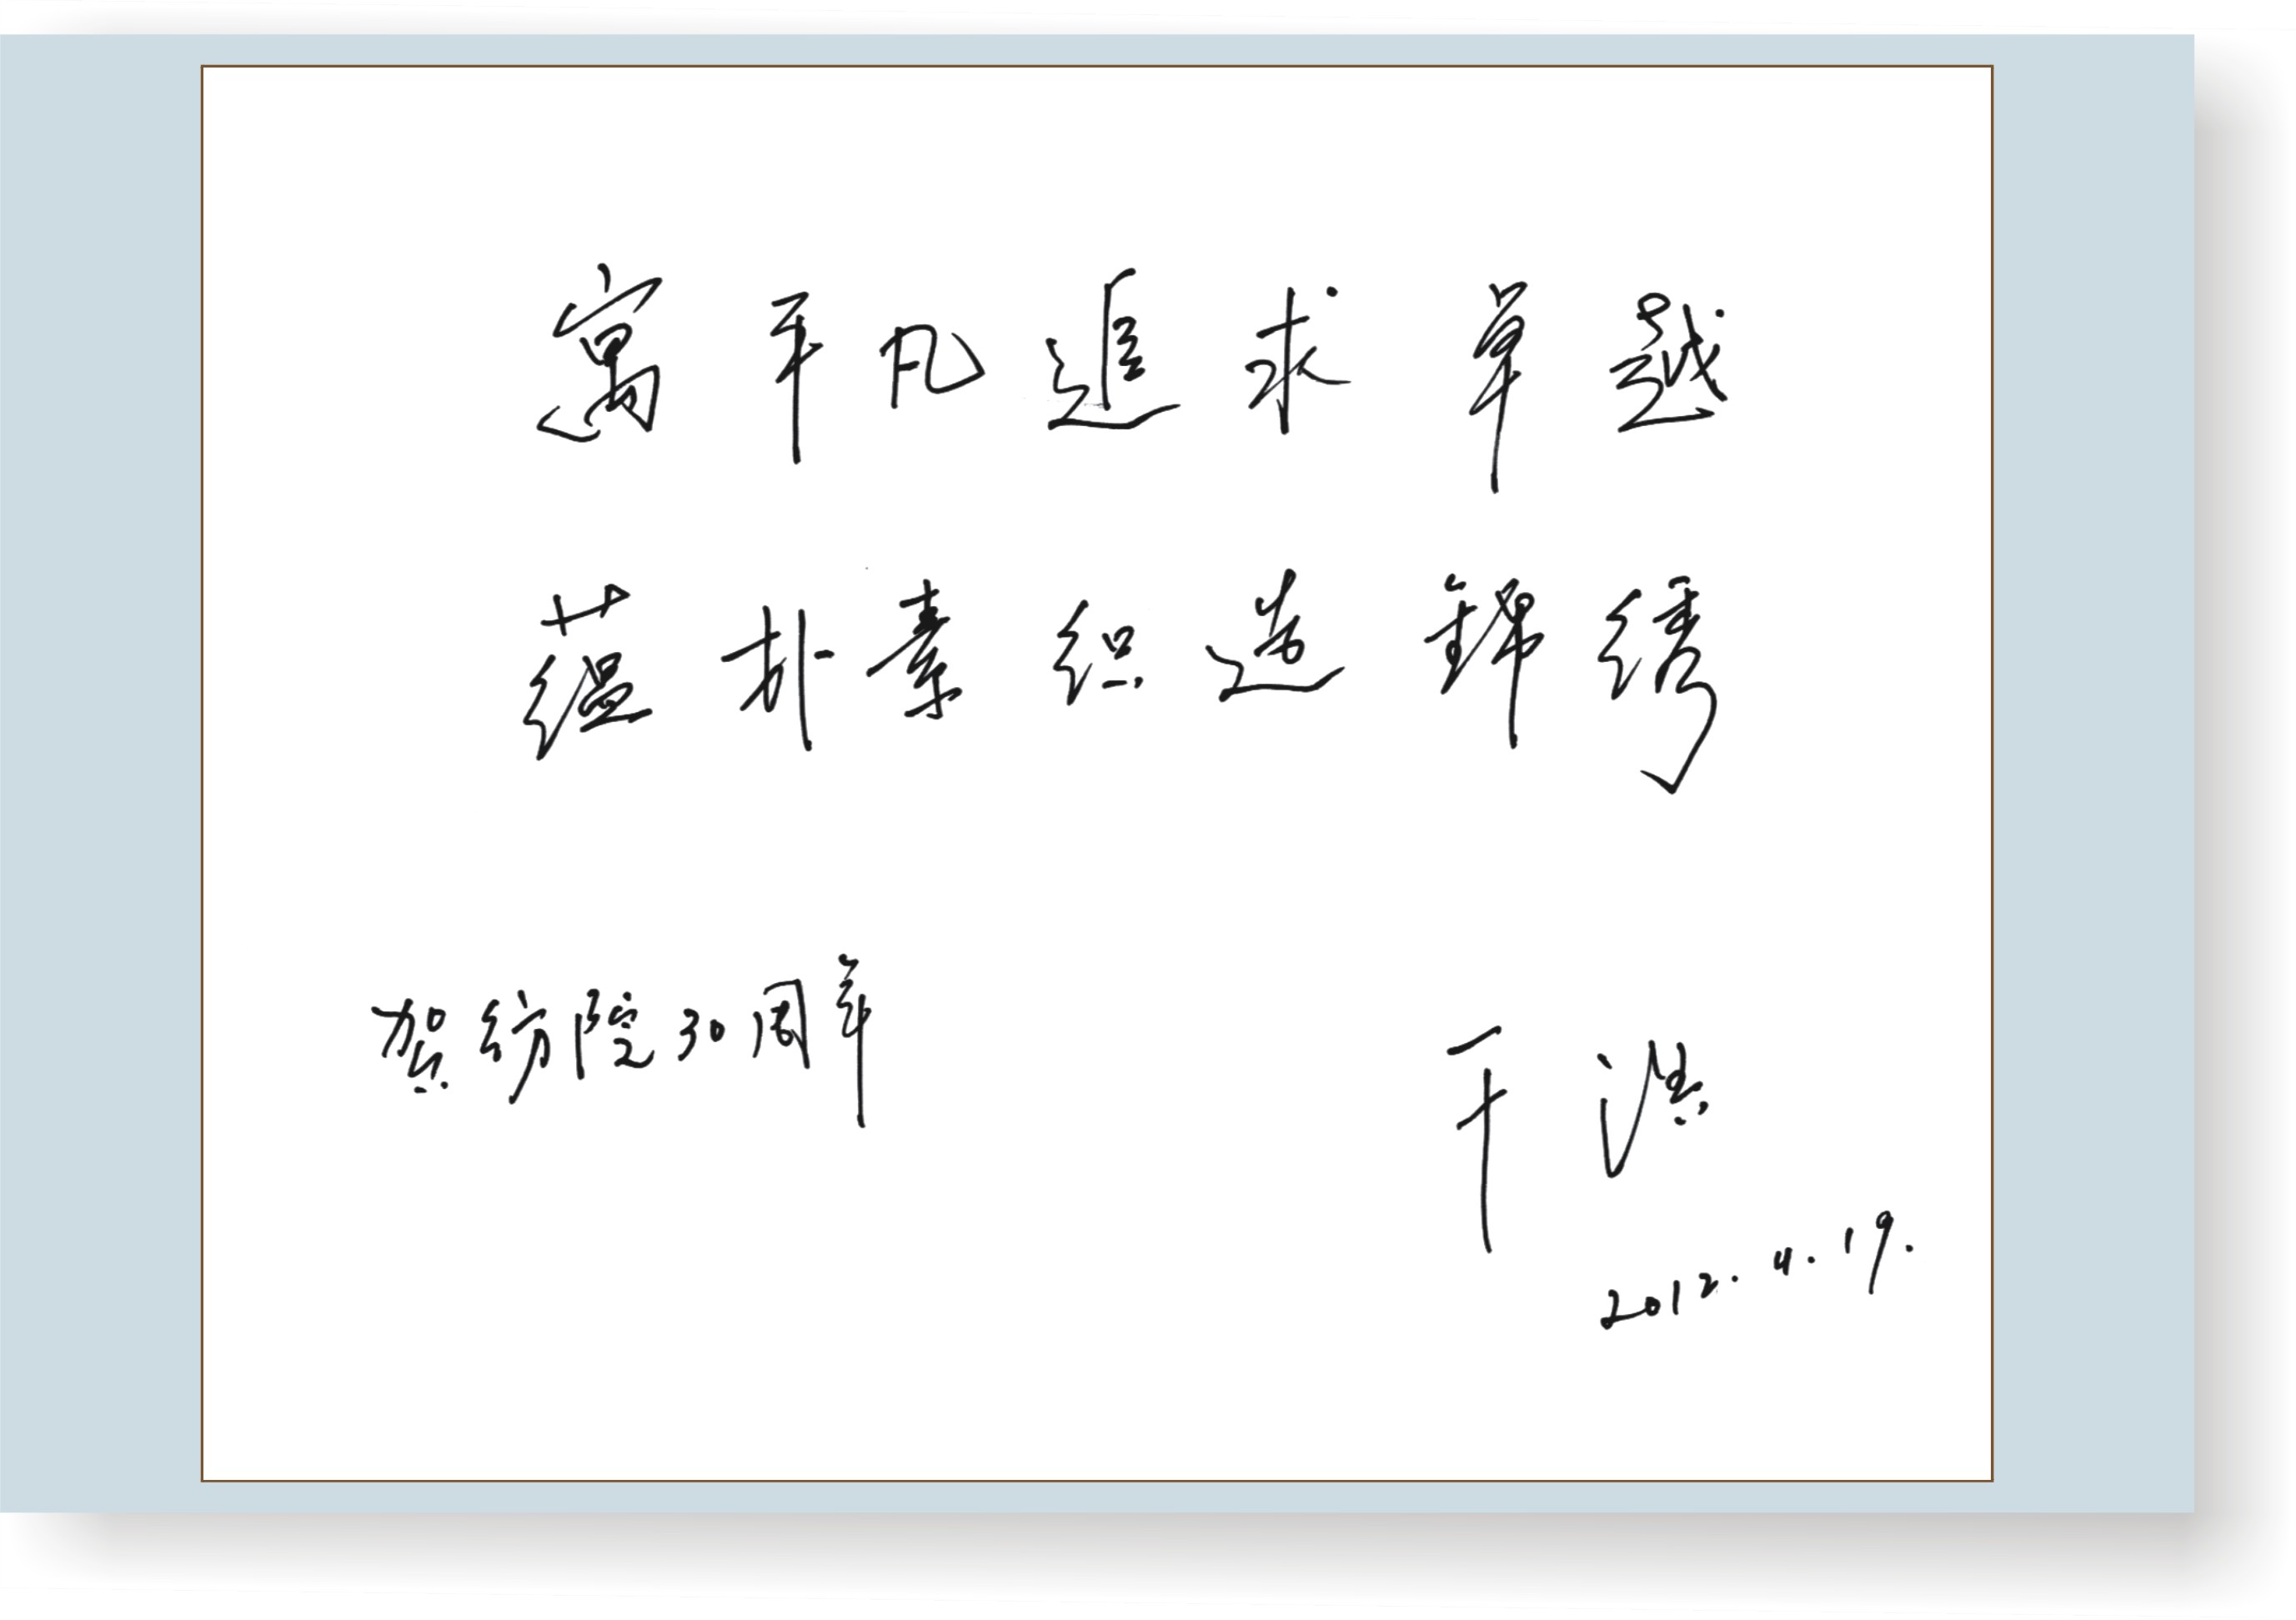 寓平凡追求卓越
蕴朴素织造锦绣
贺纺院30周年
于洪
2012.4.19.